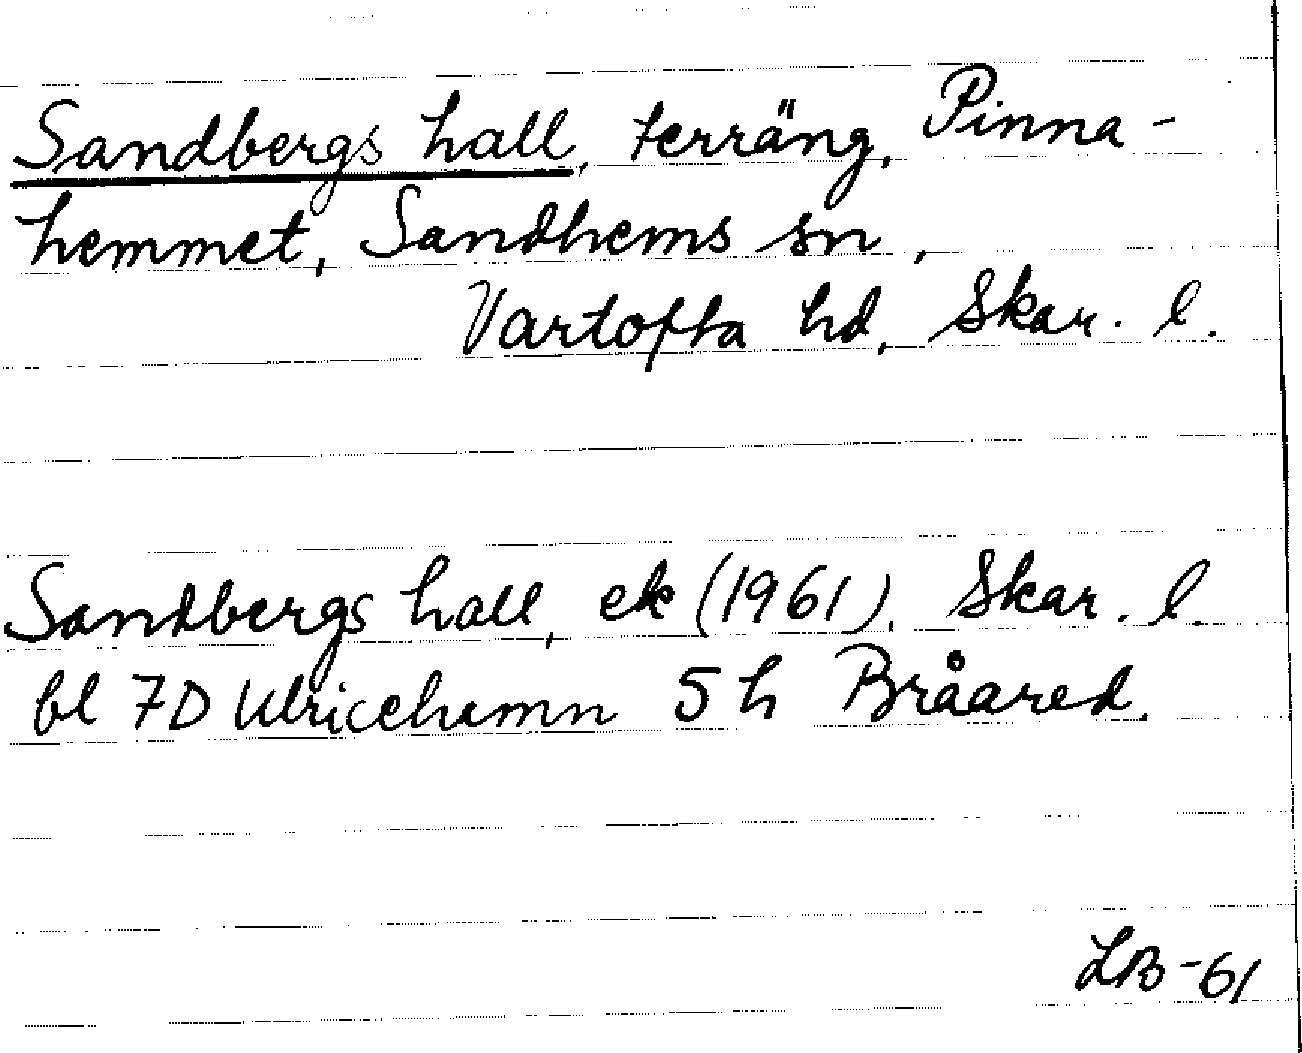 Sandbergs hall, terräng, Pinna-
hemmet, Sandhems sn,
Vartofta hd, Skar. l.
Sandbergs hall, ek (1961), Skar. l.
bl 7D Ulricehamn 5 h Bråared.
LB-61